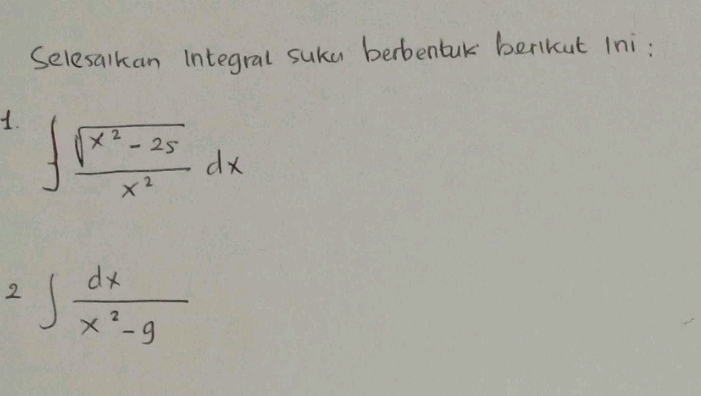 Selesaikan Integral suku berbentuk berikut ini :
1. ∫ √(x² - 25) / x² dx
2 ∫ dx / x² - 9